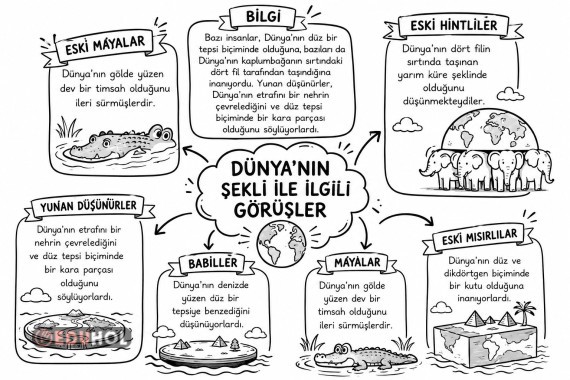 BİLGİ
Bazı insanlar, Dünya'nın düz bir
tepsi biçiminde olduğuna, bazıları da
Dünya'nın kaplumbağanın sırtındaki
dört fil tarafından taşındığına
inanıyordu. Yunan düşünürler,
Dünya'nın etrafını bir nehrin
çevrelediğini ve düz tepsi
biçiminde bir kara parçası
olduğunu söylüyorlardı.
ESKİ MAYALAR
Dünya'nın gölde yüzen
dev bir timsah olduğunu
ileri sürmüşlerdir.
ESKİ HİNTLİLER
Dünya'nın dört filin
sırtında taşınan
yarım küre şeklinde
olduğunu
düşünmekteydiler.
DÜNYA'NIN
ŞEKLİ İLE İLGİLİ
GÖRÜŞLER
YUNAN DÜŞÜNÜRLER
Dünya'nın etrafını bir
nehrin çevrelediğini
ve düz tepsi biçiminde
bir kara parçası
olduğunu
söylüyorlardı.
BABİLLER
Dünya'nın denizde
yüzen düz bir
tepsiye benzediğini
düşünüyorlardı.
MAYALAR
Dünya'nın gölde
yüzen dev bir
timsah olduğunu
ileri sürmüşlerdir.
ESKİ MISIRLILAR
Dünya'nın düz ve
dikdörtgen biçiminde
bir kutu olduğuna
inanıyorlardı.